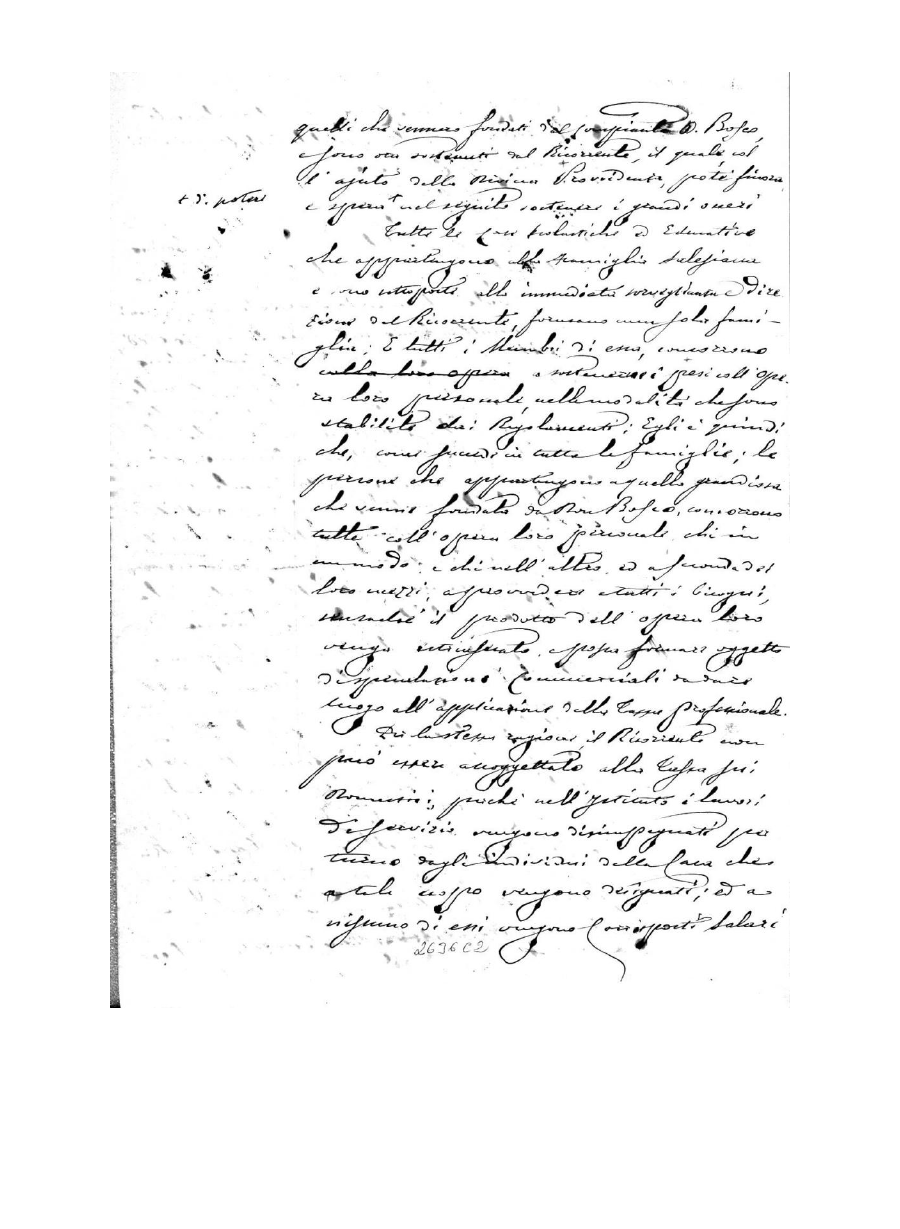 quelli che vennero fondati dal compianto D. Bosco,
e sono ora sostenuti dal Ricorrente, il quale col
l'ajuto della Divina Provvidenza, potè finora
+ di potere
e spera + nel seguito sostenere i grandi oneri
Tutte le Case Scolastiche ed Educative
che appartengono alla Famiglia Salesiana
e sono sottoposte alla immediata sorveglianza e dire
zione del Ricorrente, formano una sola fami-
glia; E tutti i Membri di essa, concorrono
colla loro opera a sostenerne i pesi coll'ope-
ra loro personale, nelle modalità che sono
stabilite dai Regolamenti; Egli è quindi
che, come succede in tutte le famiglie, le
persone che appartengono a quella grandiosa
che venne fondata da Don Bosco, concorrono
tutte coll'opera loro personale, chi in
un modo, e chi nell'altro, ed a seconda dei
loro mezzi, a provvedere a tutti i bisogni,
senza che il prodotto dell'opera loro
venga e possa formare oggetto
di speculazioni Commerciali da dare
luogo all'applicazione della Tassa professionale.
Per la stessa ragione, il Ricorrente non
può essere assoggettato alla Tassa sui
Domestici; perchè nell'Istituto i lavori
di servizio vengono disimpegnati per
turno dagli individui della Casa che
a tale uopo vengono designati; ed a
nissuno di essi vengono Corrisposti Salari
2636C2